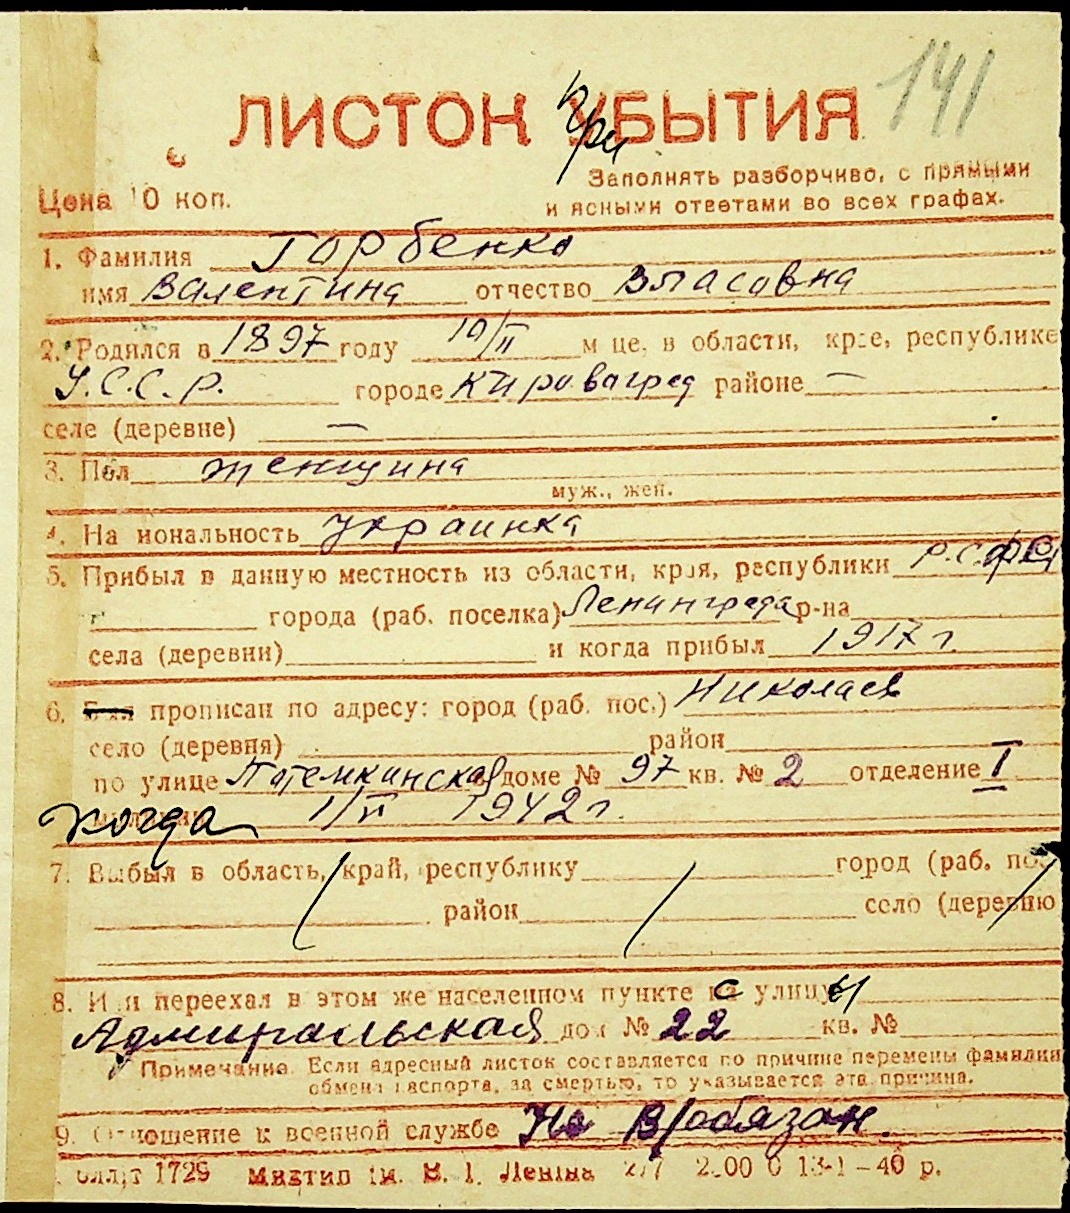 141
ЛИСТОК УБЫТИЯ
При
Цена 10 коп.
Заполнять разборчиво, с прямыми
и ясными ответами во всех графах.
1. Фамилия Горбенко
имя Валентина отчество Власовна
2. Родился в 1897 году 10/II м це, в области, крае, республике
У.С.С.Р. городе Кироваград районе —
селе (деревне) —
3. Пол женщина
муж., жен.
4. Национальность украинка
5. Прибыл в данную местность из области, края, республики Р.С.Ф.С.Р
города (раб. поселка) Ленинграда р-на
села (деревни) и когда прибыл 1917 г.
6. Был прописан по адресу: город (раб. пос.) Николаев
село (деревня) район
по улице Потемкинская доме № 97 кв. № 2 отделение I
когда 1/VI 1942 г.
7. Выбыл в область, край, республику город (раб. пос.
район село (деревню
8. Или переехал в этом же населенном пункте с улицы
Адмиральская дом № 22 кв. №
Примечание. Если адресный листок составляется по причине перемены фамилии
обмена паспорта, за смертью, то указывается эта причина.
9. Отношение к военной службе Не в/обязан.
1729 Миктип ім. В. І. Леніна 13-1-40 р.